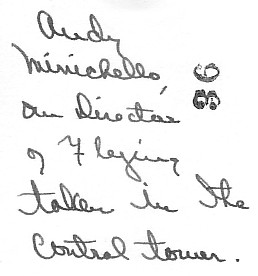 Andy
Minichello, 36
our Director
of Flying
taken in the
Control tower.